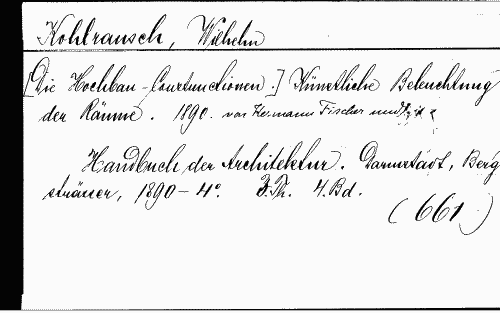 Kohlrausch, Wilhelm
[Die Hochbau-Constructionen.] Künstliche Beleuchtung
der Räume. 1890. von Hermann Fischer und
Handbuch der Architektur. Darmstadt, Berg
strässer, 1890 - 4°. 3. Th. 4. Bd.
(661)